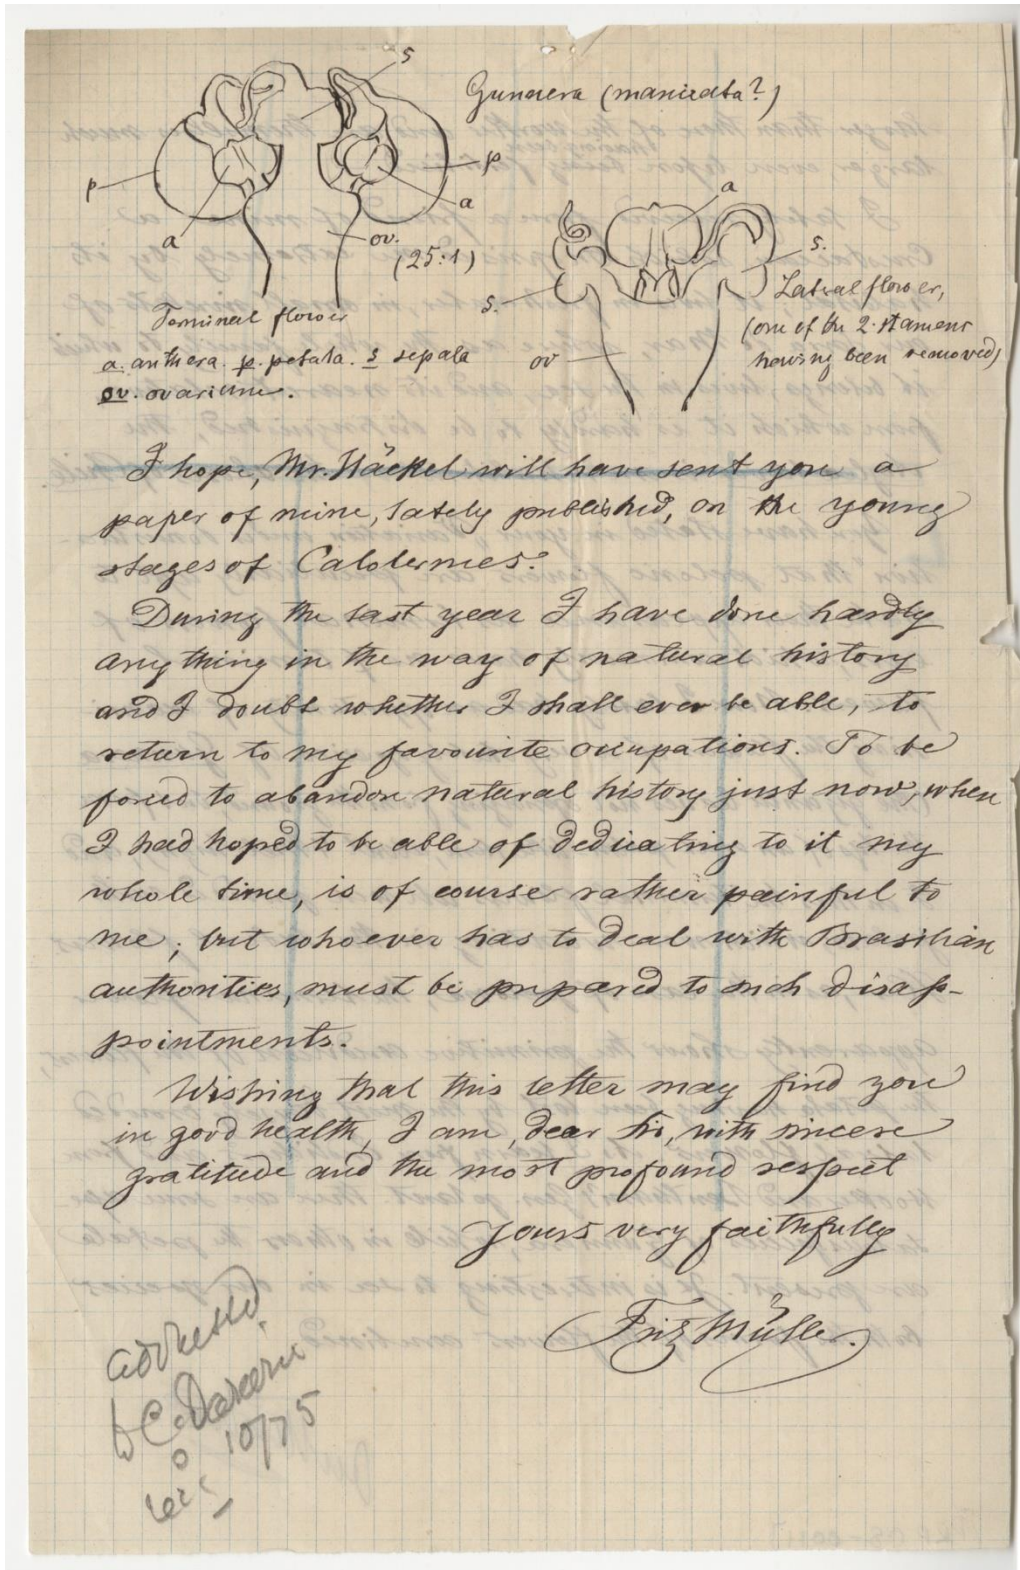 s
Gunnera (manicata?)
p
p
a
a
a
ov.
(25:1)
s.
s.
Lateral flower,
Terminal flower
(one of the 2 stamens
a. anthera. p. petala. s sepala
ov
having been removed)
ov. ovarium.
I hope, Mr. Häckel will have sent you a
paper of mine, lately published, on the young
stages of Calotermes.
During the last year I have done hardly
any thing in the way of natural history
and I doubt whether I shall ever be able, to
return to my favourite occupations. To be
forced to abandon natural history just now, when
I had hoped to be able of dedicating to it my
whole time, is of course rather painful to
me; but whoever has to deal with Brasilian
authorities, must be prepared to such disap-
pointments.
Wishing that this letter may find you
in good health, I am, dear Sir, with sincere
gratitude and the most profound respect
Yours very faithfully
Fritz Müller.
addressed
C. Darwin
10/75